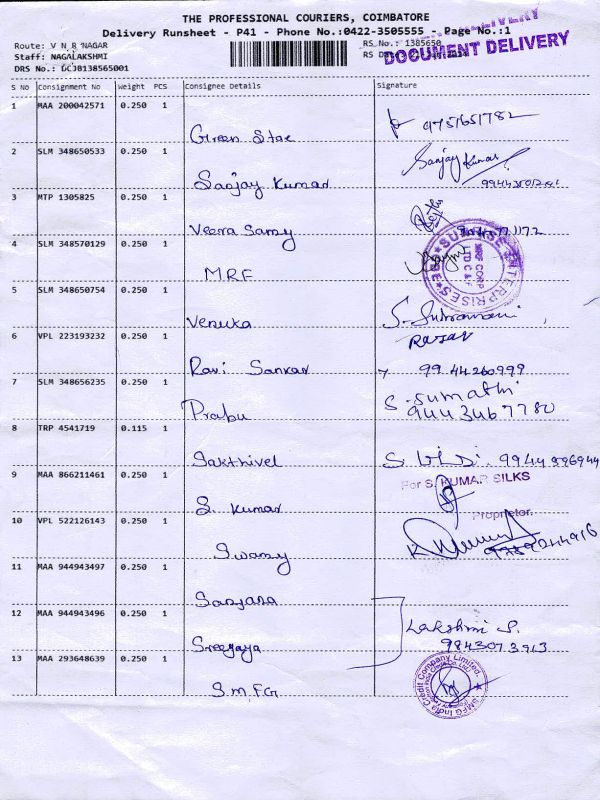 THE PROFESSIONAL COURIERS, COIMBATORE
Delivery Runsheet - P41 - Phone No.:0422-3505555 - Page No.:1
DOCUMENT DELIVERY
Route: V N R NAGAR
RS No.: 1385650
Staff: NAGALAKSHMI
DRS No.: DCJB138565001
S No Consignment No Weight PCS Consignee Details Signature
1 MAA 200042571 0.250 1
Green Star 9751651782
2 SLM 348650533 0.250 1
Sanjay Kumar Sanjay Kumar
3 MTP 1305825 0.250 1
Veera Samy
4 SLM 348570129 0.250 1
MRF
SUNRISE ENTERPRISES
MRF CORP LTD C&F
5 SLM 348650754 0.250 1
Venuka
6 VPL 223193232 0.250 1
Ravi Sankar 99 44260999
7 SLM 348656235 0.250 1
Prabu S. Sumathi
944 3467780
8 TRP 4541719 0.115 1
Sakthivel
9 MAA 866211461 0.250 1
For S. KUMAR SILKS
S. Kumar
Proprietor.
10 VPL 522126143 0.250 1
Swamy
11 MAA 944943497 0.250 1
Sanjana
12 MAA 944943496 0.250 1
Lakshmi S.
9843073913
13 MAA 293648639 0.250 1
S.M.FG
SMFG India Credit Company Limited.